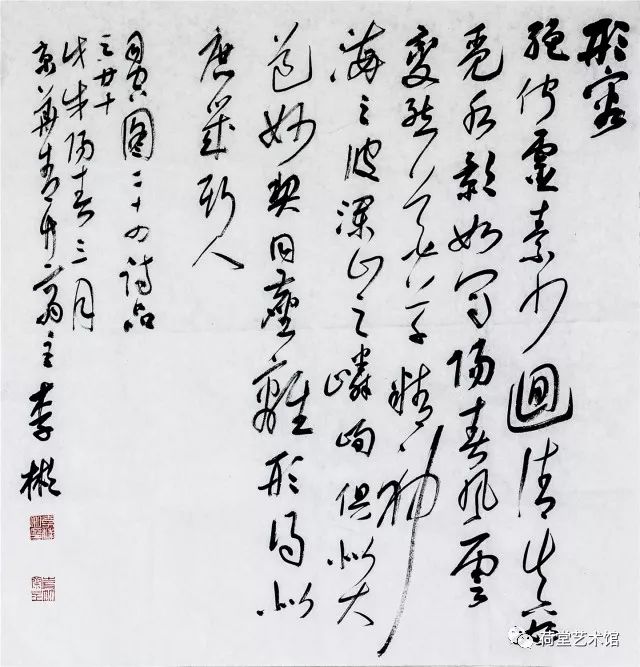 形容
絕佇靈素少迴清真如
覓水影如寫陽春風雲
變態花草精神
海之波瀾山之嶙峋俱似大
道妙契同塵離形得似
庶幾斯人
司空圖二十四詩品
之廿十
戊戌陽春三月
京華青竹齋主李彬
荷堂艺术馆